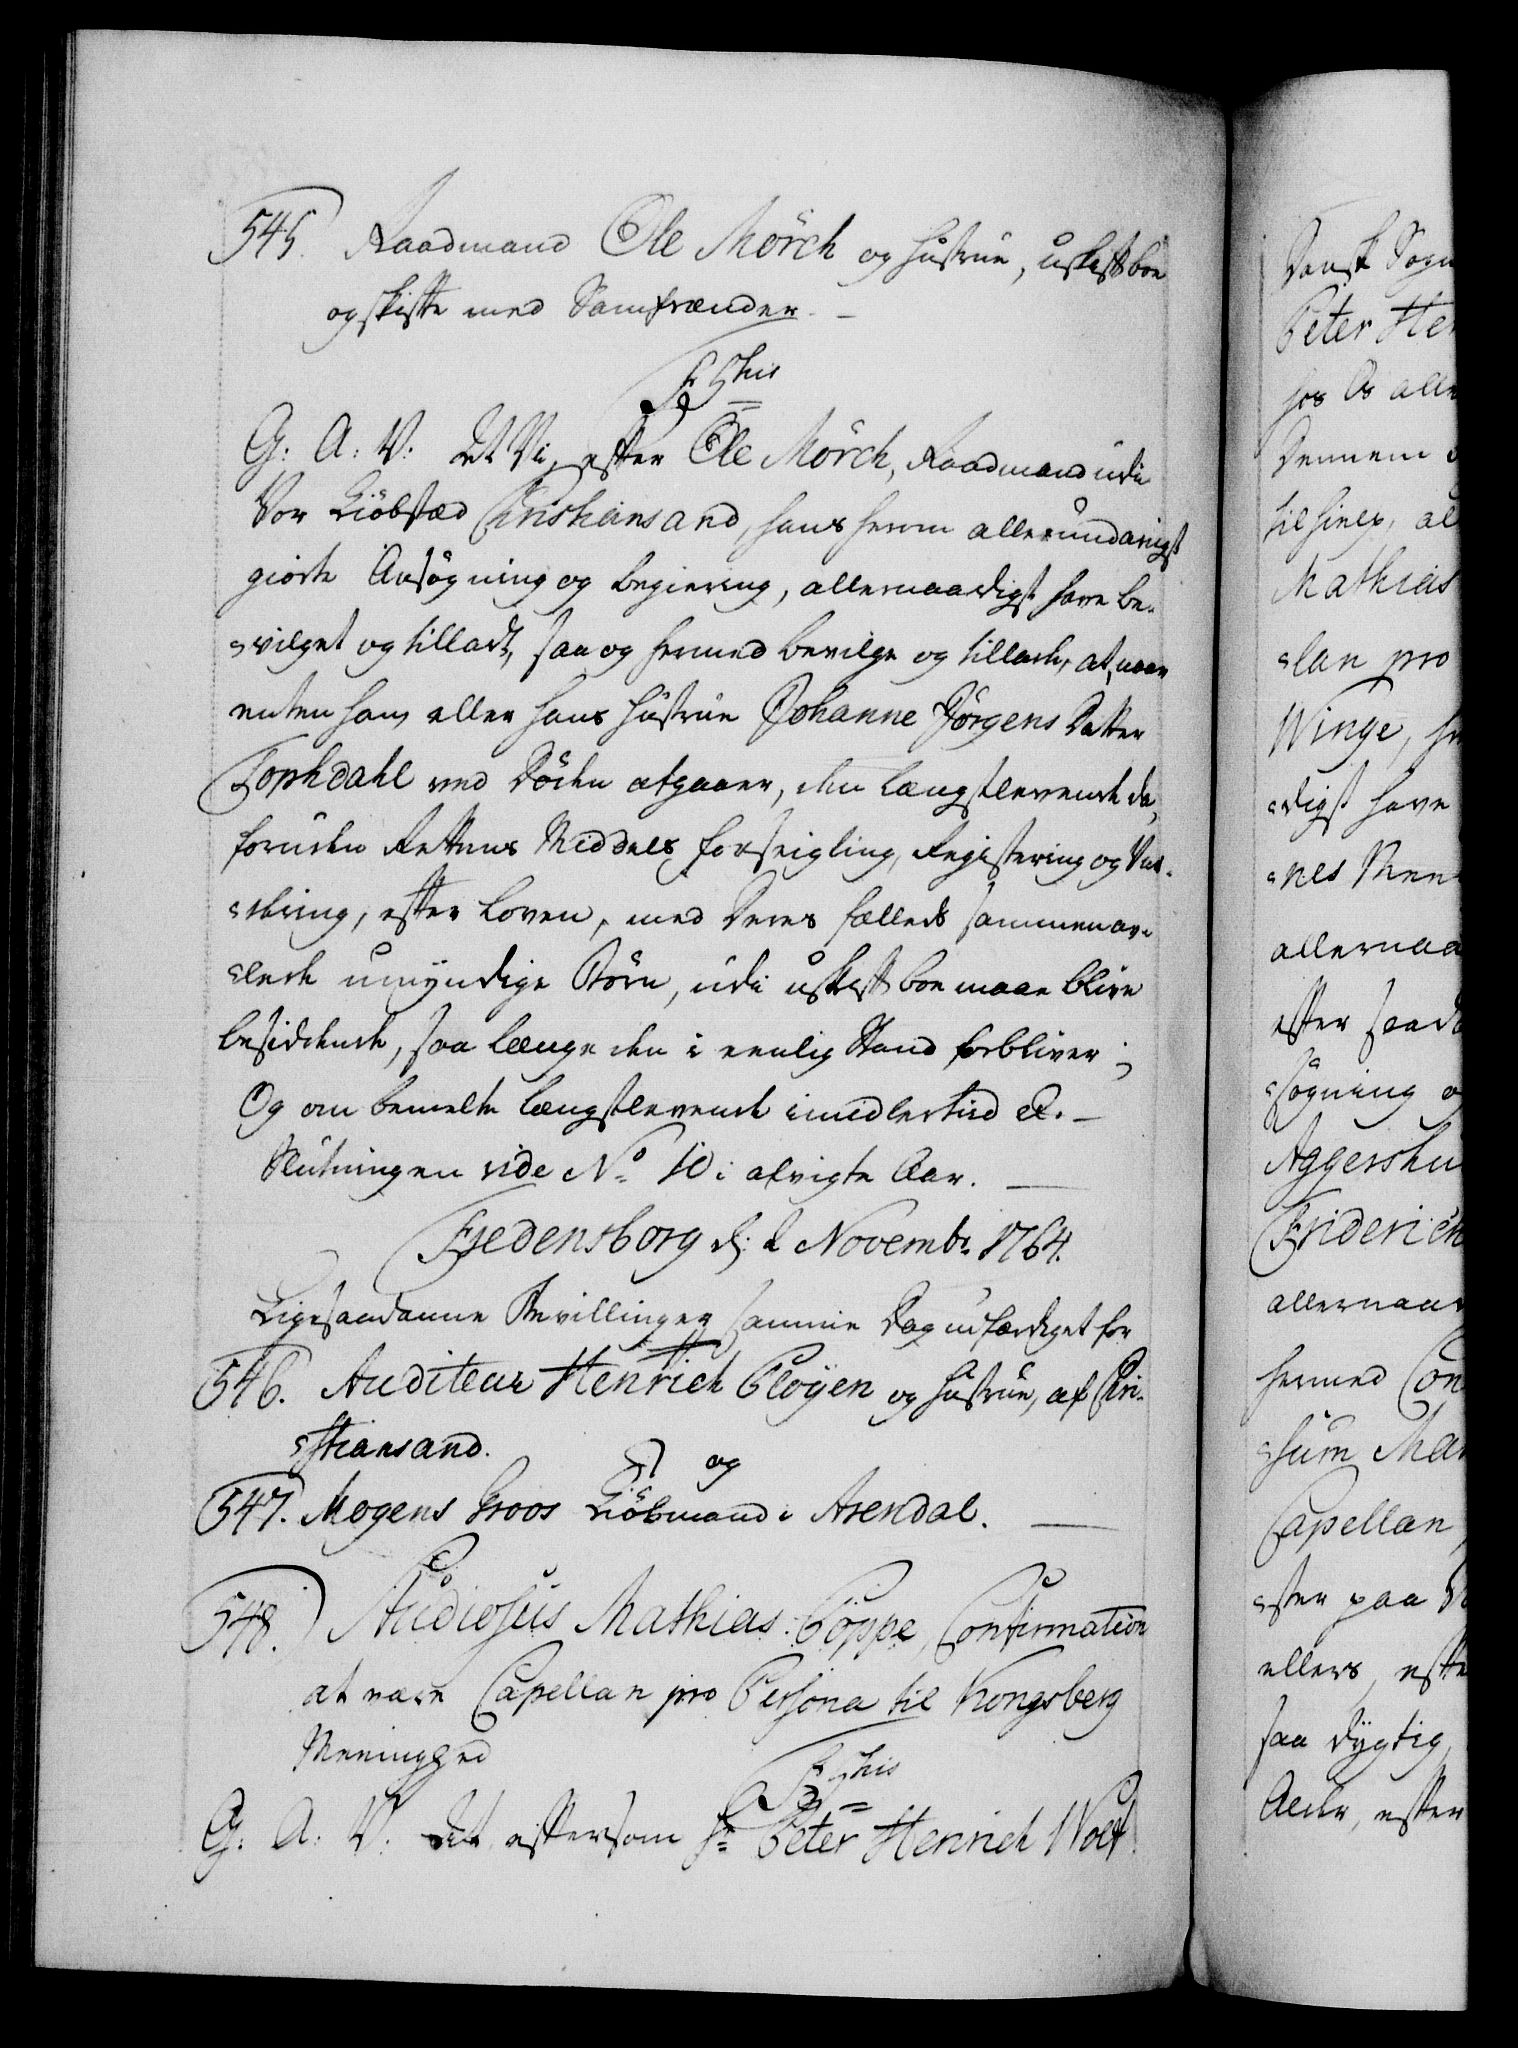 545. Raadmand Ole Mörch og Hustrue, uskift boe
og skifte med Samfrænder. —
F 5this
G: A: V: At Vi, efter Ole Mörch, Raadmand udi
Vor Kiöbstæd Christiansand, hans herom allerundanigst
giorte Ansögning og begiering, allernaadigst have be-
vilget og tilladt, saa og hermed bevilge og tillade, at, naar
enten han eller hans Hustrue Johanne Jörgens Datter
Tophdahl ved Döden afgaaer, den længstlevende da,
foruden Rettens Middels Forseigling, Registering og Vur-
dering, efter Loven, med Deres fælleds sammenav-
lede umyndige Börn, udi uskift boe maae blive
besiddende, saa længe den i eenlig Stand forbliver;
Og om bemelte længstlevende imidlertid &. —
Slutningen vide No 10 i afvigte Aar. —
Fredensborg d: 2 Novembr 1764.
Ligesaadanne Bevillinger samme Dag udfærdiget for
546. Auditeur Henrich Ployen og Hustrue, af Chri-
stiansand.
og
547. Mogens Groos Kiöbmand i Arendal. —
548. Studiosus Mathias Poppe, Confirmation
at være Capellan pro Persona til Kongsberg
Meenighed
this
G. A: V. At, eftersom Hr Peter Henrich Wolf
Dansk Sogn
Peter Hen
hos Os alle
Dennem
til hielp, al
Mathias
lan pro
Winge, h
digst have
nes Men
allernaa
efter saad
sögning o
Aggershu
Friderich
allernaa
hermed Con
sum Ma
Capellan
ster paa
ellers, efte
saa dygtig
Alder, efter